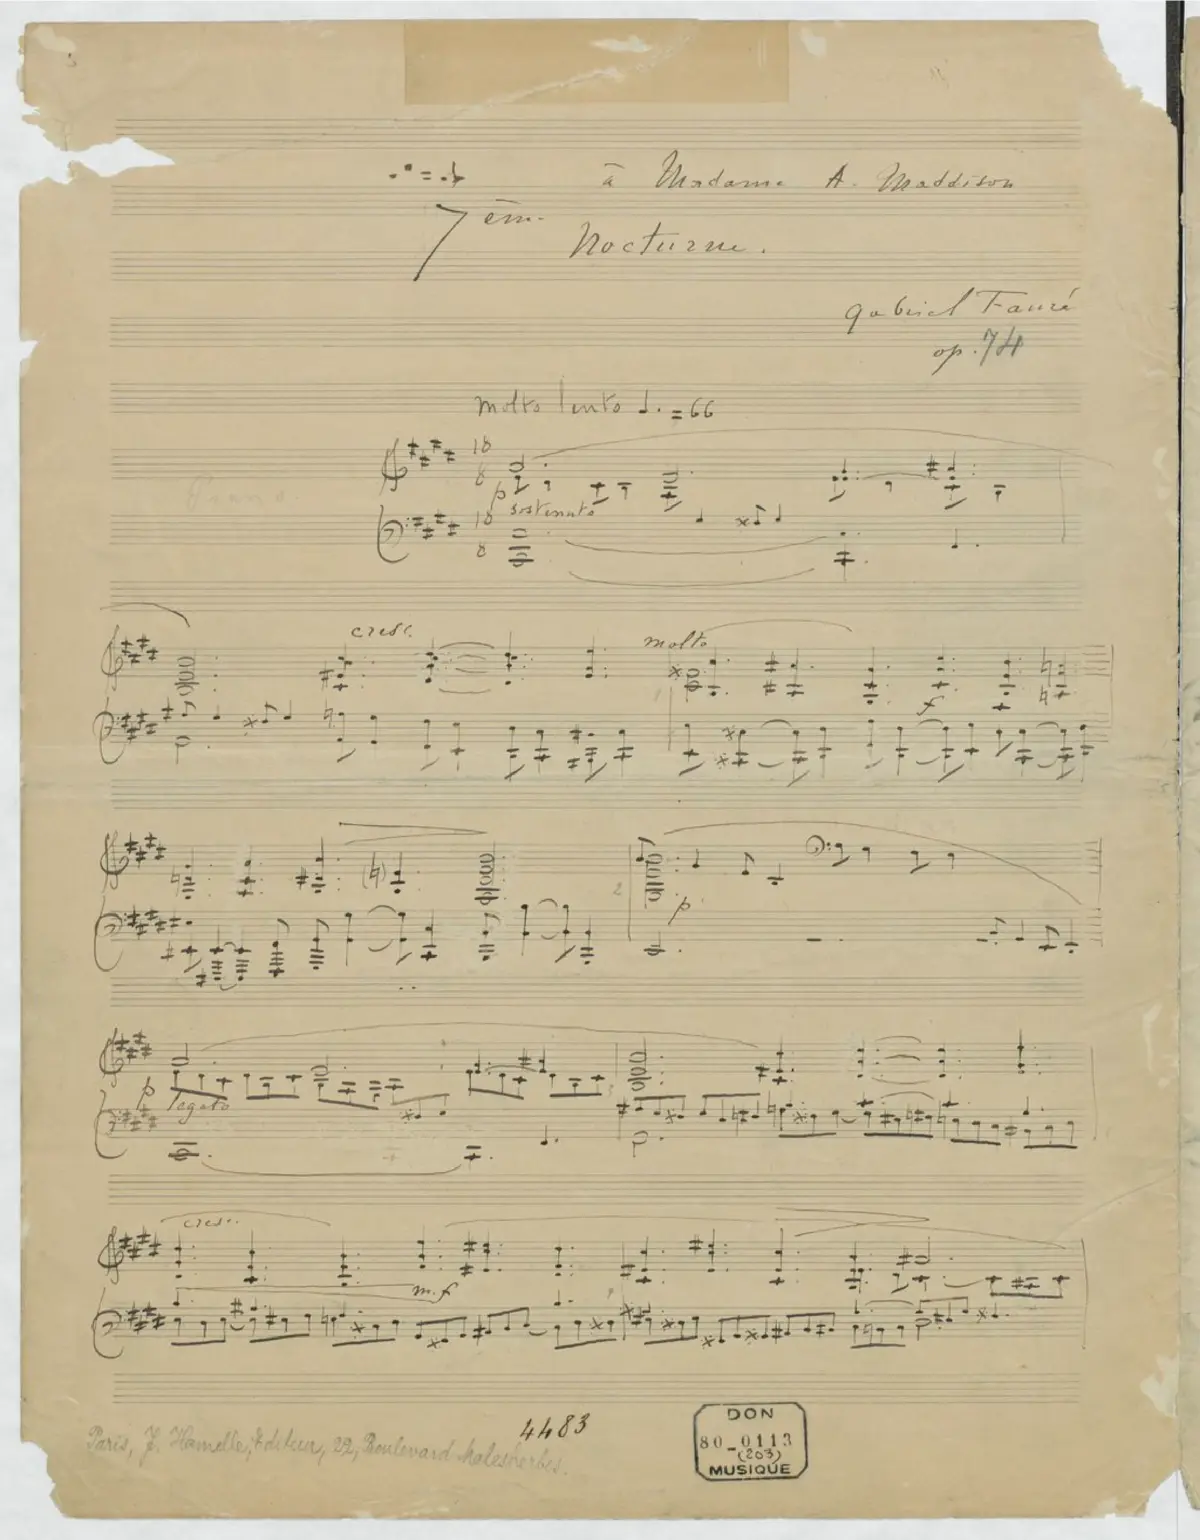 à Madame A. Maddison
7 èm.
Nocturne.
gabriel Fauré
op. 74
molto lento = 66
Piano.
18
8
p
sostenuto
18
8
cresc.
molto
f
2
p
p
legato
cresc.
m.f
4483
Paris, J. Hamelle, Editeur, 22, Boulevard Malesherbes.
DON
80-0113
(203)
MUSIQUE